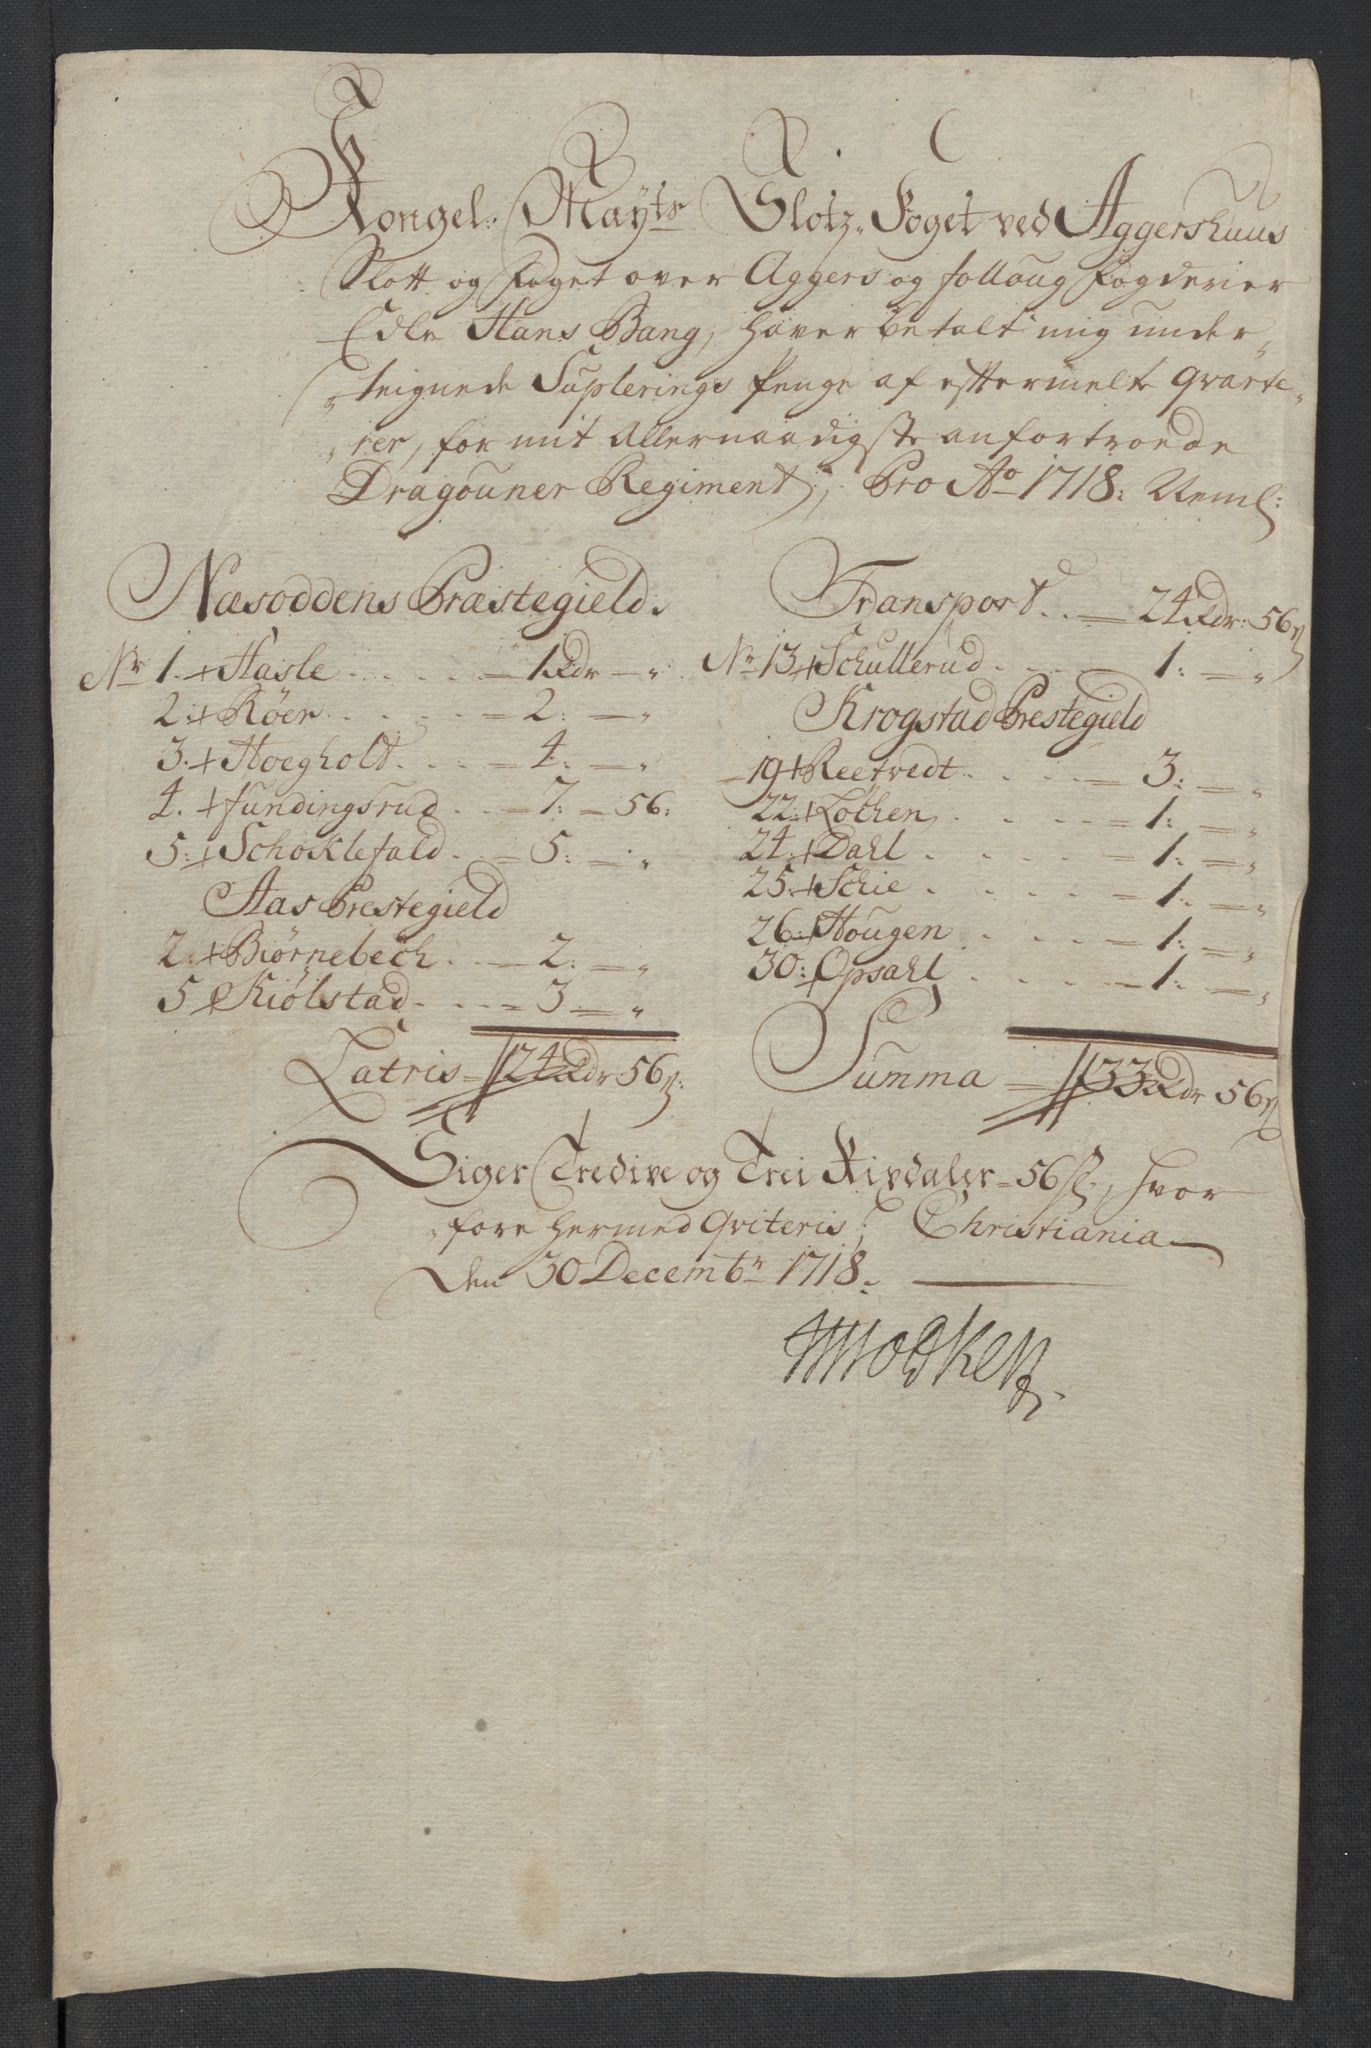 Kongel: Mayts Slotz-Foget ved Aggershuus
Slott og Foget over Aggers og Folloug Fogderier
Edle Hans Bang, haver betalt mig under-
teignede Suplerings Penge af efftermelte Qvarte-
rer, for mit Allernaadigste anfortroede
Dragouner Regiment, Pro Ao 1718: Neml:
Næsoddens Præstegield.
Nr 1. + Hasle . . . . . = 1 Rdr — "
2: + Röer . . . . = 2: — "
3. + Hoegholt . . . = 4. — "
4. + Fundingsrud . . = 7: — 56:
5: + Schoklefald . . = 5: — "
Aas Prestegield
2: + Biörnebech . . = 2: — "
5 + Kiölstad . . . . = 3 — "
Latris = 24 Rdr 56 ß:
Transport . . = 24 Rdr: 56 ß
Nr 13 + Schullerud . . . . = 1: — "
Krogstad Prestegield
19 + Reetvedt . . . . = 3: — "
22: + Lothen . . . . . = 1: — "
24: + Dahl . . . . . = 1: — "
25: + Schie . . . . . = 1: — "
26: + Hougen . . . . = 1: — "
30: + Opsahl . . . . . = 1: — "
Summa = 33 Rdr 56 ß
Siger Tredive og Trei Rixdaler - 56 ß, hvor
fore hermed Qviteris; Christiania
den 30 Decembr 1718: